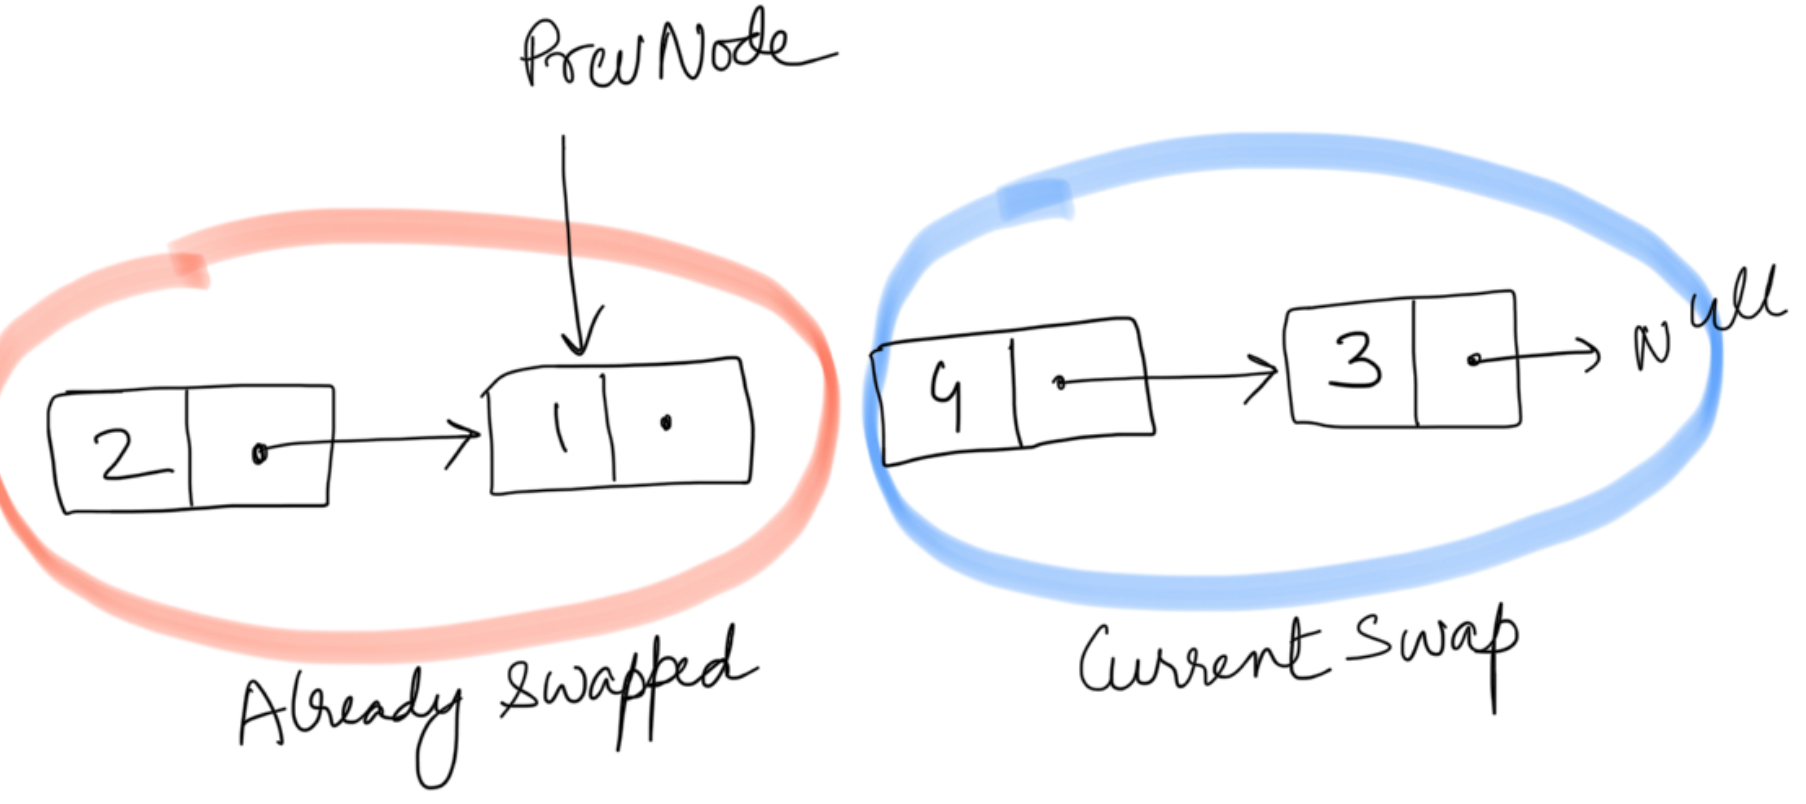 PrevNode
2
1
4
3
Null
Already Swapped
Current Swap